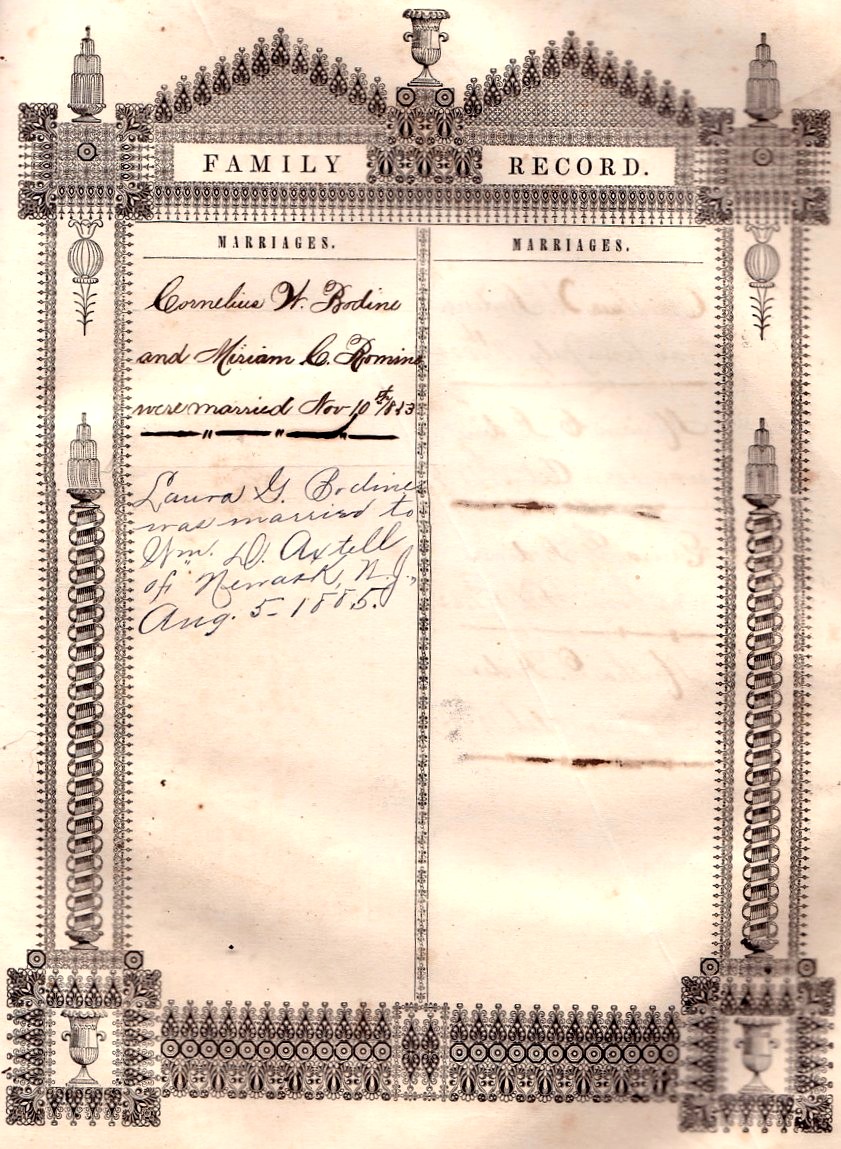 FAMILY RECORD.
MARRIAGES.
Cornelius W. Bodine
and Miriam C. Romine
were married Nov 10th
Laura G. Bodine
was married to
Wm. D. Axtell
of Newark, N.J.,
Aug. 5-1885.
MARRIAGES.